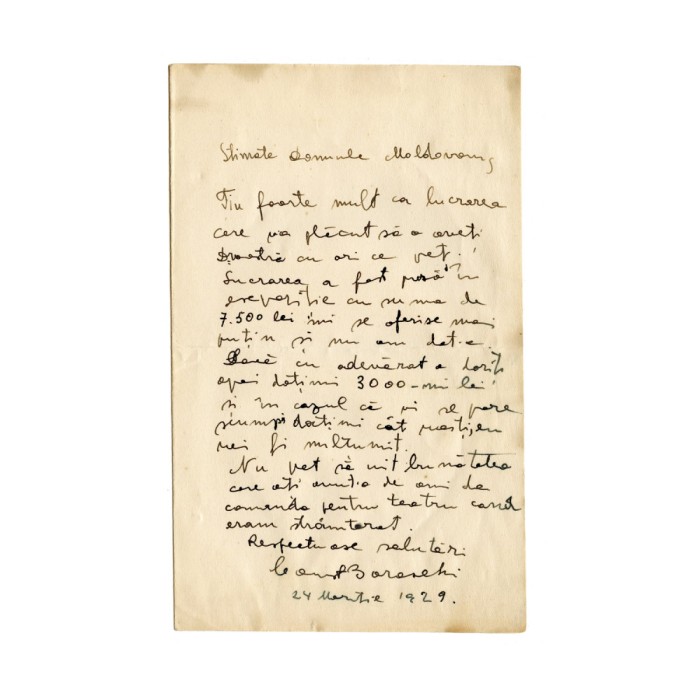 Stimate Domnule Moldovanu,
Țiu foarte mult ca lucrarea
care va plăcut să o aveți
Dvoastră cu ori ce preț.
Lucrarea a fost pusă în
expoziție cu suma de
7.500 lei îmi se oferise mai
puțin și nu am dat-o.
Dacă cu adevărat o doriți
apoi dațimi 3000-mi lei
și în cazul că vi se pare
scump dațimi cât
voi fi multumit.
Nu pot să uit bunătatea
care ați avut-o de ami da
comanda pentru teatru cand
eram strâmtorat.
Respectuoase salutări
Const Baraschi
24 Martie 1929.